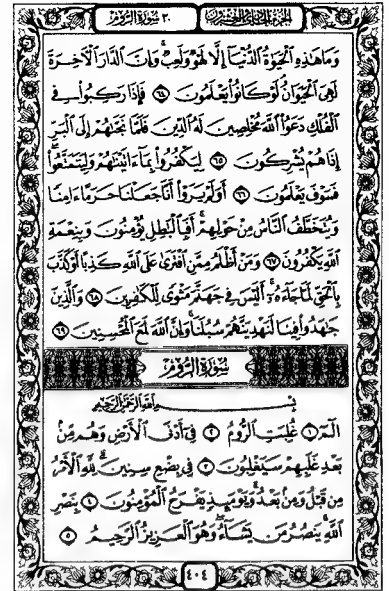 ٣٠ سورة الروم الجزء الحادي والعشرون
وَمَا هَٰذِهِ ٱلْحَيَوٰةُ ٱلدُّنْيَآ إِلَّا لَهْوٌ وَلَعِبٌ ۚ وَإِنَّ ٱلدَّارَ ٱلْءَاخِرَةَ
لَهِىَ ٱلْحَيَوَانُ ۚ لَوْ كَانُوا۟ يَعْلَمُونَ ٦٤ فَإِذَا رَكِبُوا۟ فِى
ٱلْفُلْكِ دَعَوُا۟ ٱللَّهَ مُخْلِصِينَ لَهُ ٱلدِّينَ فَلَمَّا نَجَّىٰهُمْ إِلَى ٱلْبَرِّ
إِذَا هُمْ يُشْرِكُونَ ٦٥ لِيَكْفُرُوا۟ بِمَآ ءَاتَيْنَٰهُمْ وَلِيَتَمَتَّعُوا۟ ۖ
فَسَوْفَ يَعْلَمُونَ ٦٦ أَوَلَمْ يَرَوْا۟ أَنَّا جَعَلْنَا حَرَمًا ءَامِنًا
وَيُتَخَطَّفُ ٱلنَّاسُ مِنْ حَوْلِهِمْ ۚ أَفَبِٱلْبَٰطِلِ يُؤْمِنُونَ وَبِنِعْمَةِ
ٱللَّهِ يَكْفُرُونَ ٦٧ وَمَنْ أَظْلَمُ مِمَّنِ ٱفْتَرَىٰ عَلَى ٱللَّهِ كَذِبًا أَوْ كَذَّبَ
بِٱلْحَقِّ لَمَّا جَآءَهُۥٓ ۚ أَلَيْسَ فِى جَهَنَّمَ مَثْوًى لِّلْكَٰفِرِينَ ٦٨ وَٱلَّذِينَ
جَٰهَدُوا۟ فِينَا لَنَهْدِيَنَّهُمْ سُبُلَنَا ۚ وَإِنَّ ٱللَّهَ لَمَعَ ٱلْمُحْسِنِينَ ٦٩
سُورَةُ الرُّومِ
بِسْمِ ٱللَّهِ ٱلرَّحْمَٰنِ ٱلرَّحِيمِ
الٓمٓ ١ غُلِبَتِ ٱلرُّومُ ٢ فِىٓ أَدْنَى ٱلْأَرْضِ وَهُم مِّنۢ
بَعْدِ غَلَبِهِمْ سَيَغْلِبُونَ ٣ فِى بِضْعِ سِنِينَ ۗ لِلَّهِ ٱلْأَمْرُ
مِن قَبْلُ وَمِنۢ بَعْدُ ۚ وَيَوْمَئِذٍ يَفْرَحُ ٱلْمُؤْمِنُونَ ٤ بِنَصْرِ
ٱللَّهِ ۚ يَنصُرُ مَن يَشَآءُ ۖ وَهُوَ ٱلْعَزِيزُ ٱلرَّحِيمُ ٥
٤٠٤